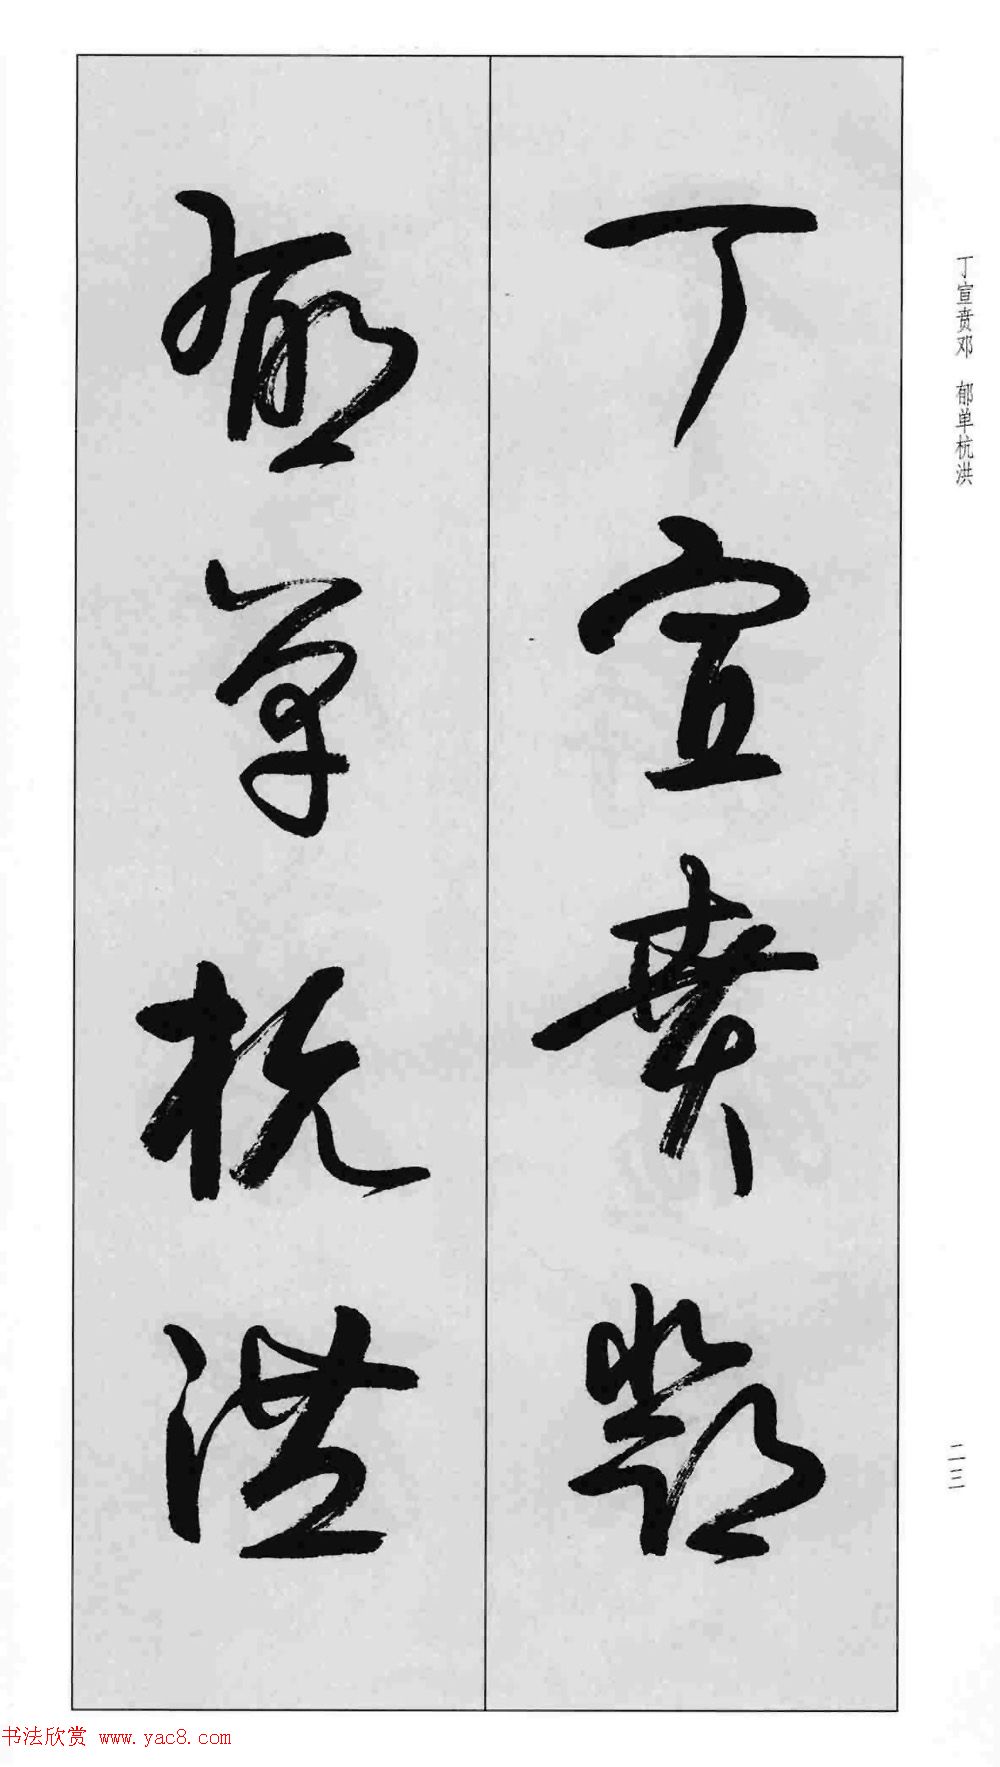 丁宣贲邓
郁单杭洪
丁宣贲邓 郁单杭洪
二三
书法欣赏 www.yac8.com